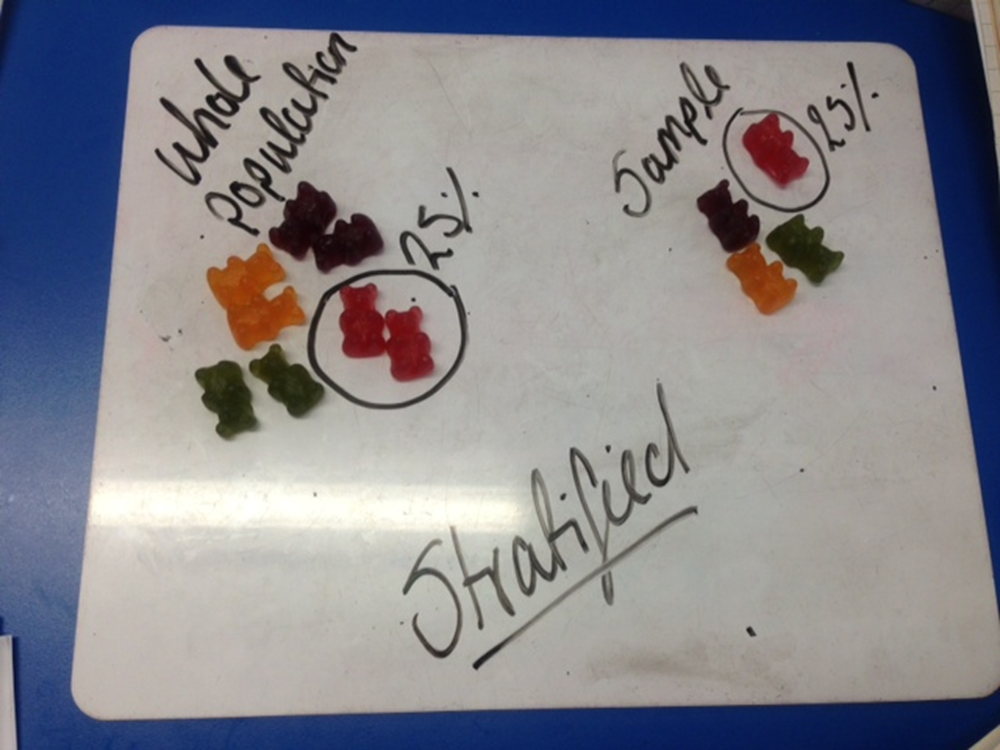 Whole
Population
25%
Sample
25%
Stratified